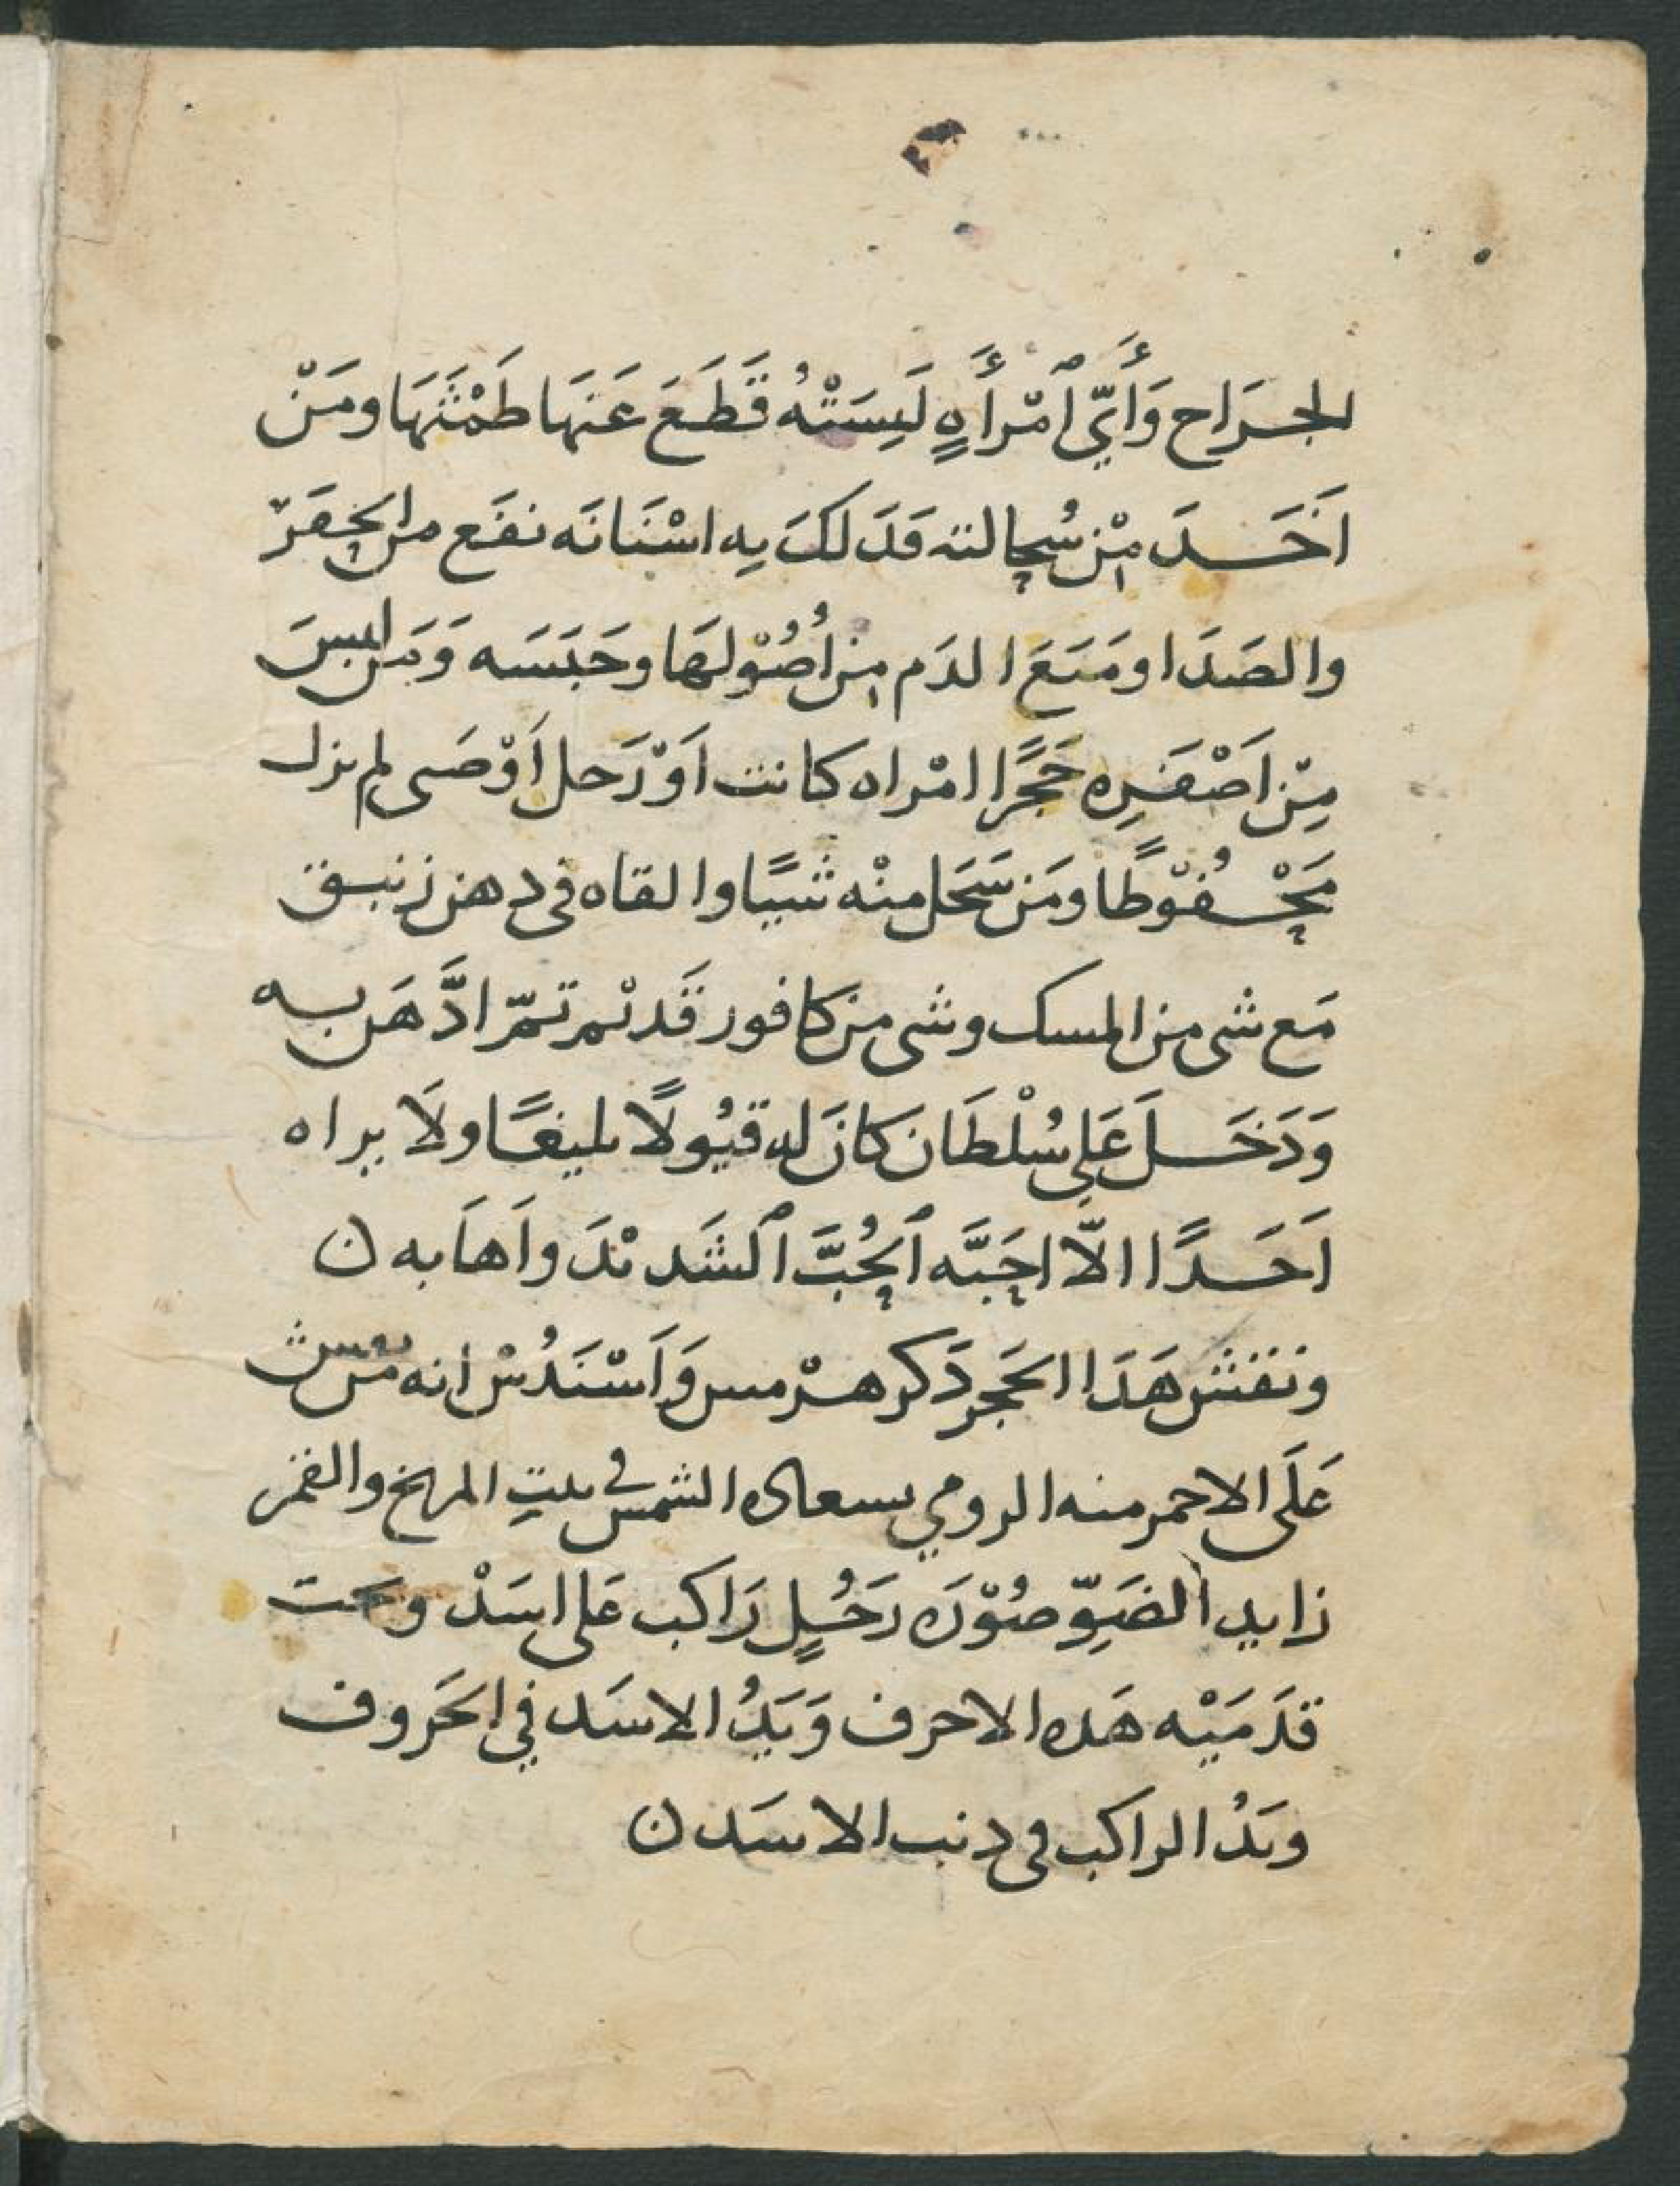 الجراح وَأَيّ ٱمْرأَةٍ لَبِسَتْهُ قَطَعَ عَنهَا طَمْثَهَا ومَنْ
اَخَـــدَ مِنْ سُحالته فَدَلكَ بِهِ اسْنَانَه نفَع من الحفَرْ
والصَدَا ومَنَعَ الدَم مِن اُصُوْلهَا وحَبَسَه وَمَن لبسَ
مِنْ اَصْفَرِه حَجَرًا امْراه كانت اَوْ رَجل اَوْ صَبى لم يزل
مَحْـفُوْظًا ومَن سَحَل منْه شيًا والقاه فى دهن زنبق
مَع شى من المسك وشى من كافور قَد ثمّ ادَّهَن به
وَدَخَــلَ عَلى سُلْطَان كانَ له قبُولًا بليغًا ولَا يراه
اَحَــدًا الّا احَبَّه ٱلحُبَّ ٱلشَديْدَ واَهَابه ن
ونقش هَدَا الحَجر دَكر هـرْمس وَاَسْنَدُسْ انه منْ نقش
عَلَى الاحمر منه الرومي الشمس في بيتِ المريخ والقمر
زايد الضَوِّ صُوْرَه رَجُلٍ رَاكب عَلى اسَدْ وتحت
قدَمَيْه هَده الاحرف وَيَدُ الاسَد في الحَروف
ويَدُ الراكب فى دنب الاسَد ن